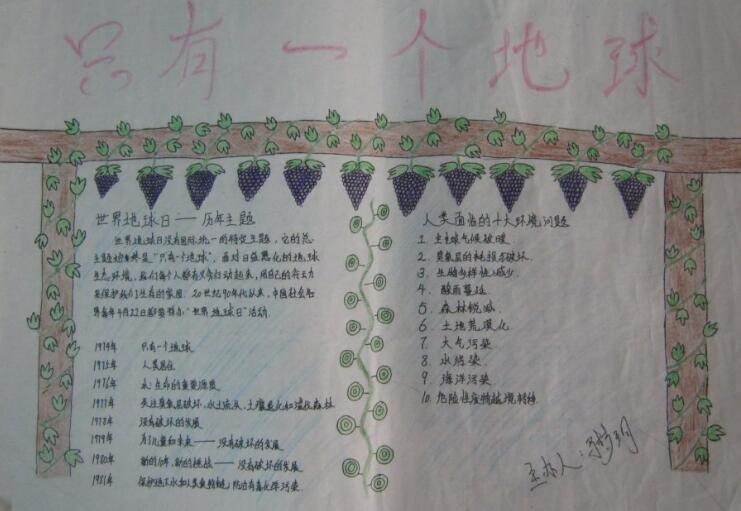 只有一个地球
世界地球日——历年主题
世界地球日没有国际统一的特定主题，它的总
主题始终是“只有一个地球”。面对日益恶化的地球
生态环境，我们每个人都有义务行动起来，用自己的行动
来保护我们生存的家园。20世纪90年代以来，中国社会各
界每年4月22日都要举办“世界地球日”活动.
1974年 只有一个地球
1975年 人类居住
1976年 水:生命的重要源泉
1977年 关注臭氧层破坏、水土流失、土壤退化和滥伐森林
1978年 没有破坏的发展
1979年 为儿童和未来——没有破坏的发展
1980年 新的10年,新的挑战——没有破坏的发展
1981年 保护地下水和人类食物链,防治有毒化学污染.
人类面临的十大环境问题
1. 全球气候破暖.
2. 臭氧层的耗损与破坏.
3. 生物多样性减少.
4. 酸雨蔓延
5. 森林锐减.
6. 土地荒漠化
7. 大气污染
8. 水污染.
9. 海洋污染.
10. 危险性废物越境转移.
主办人: